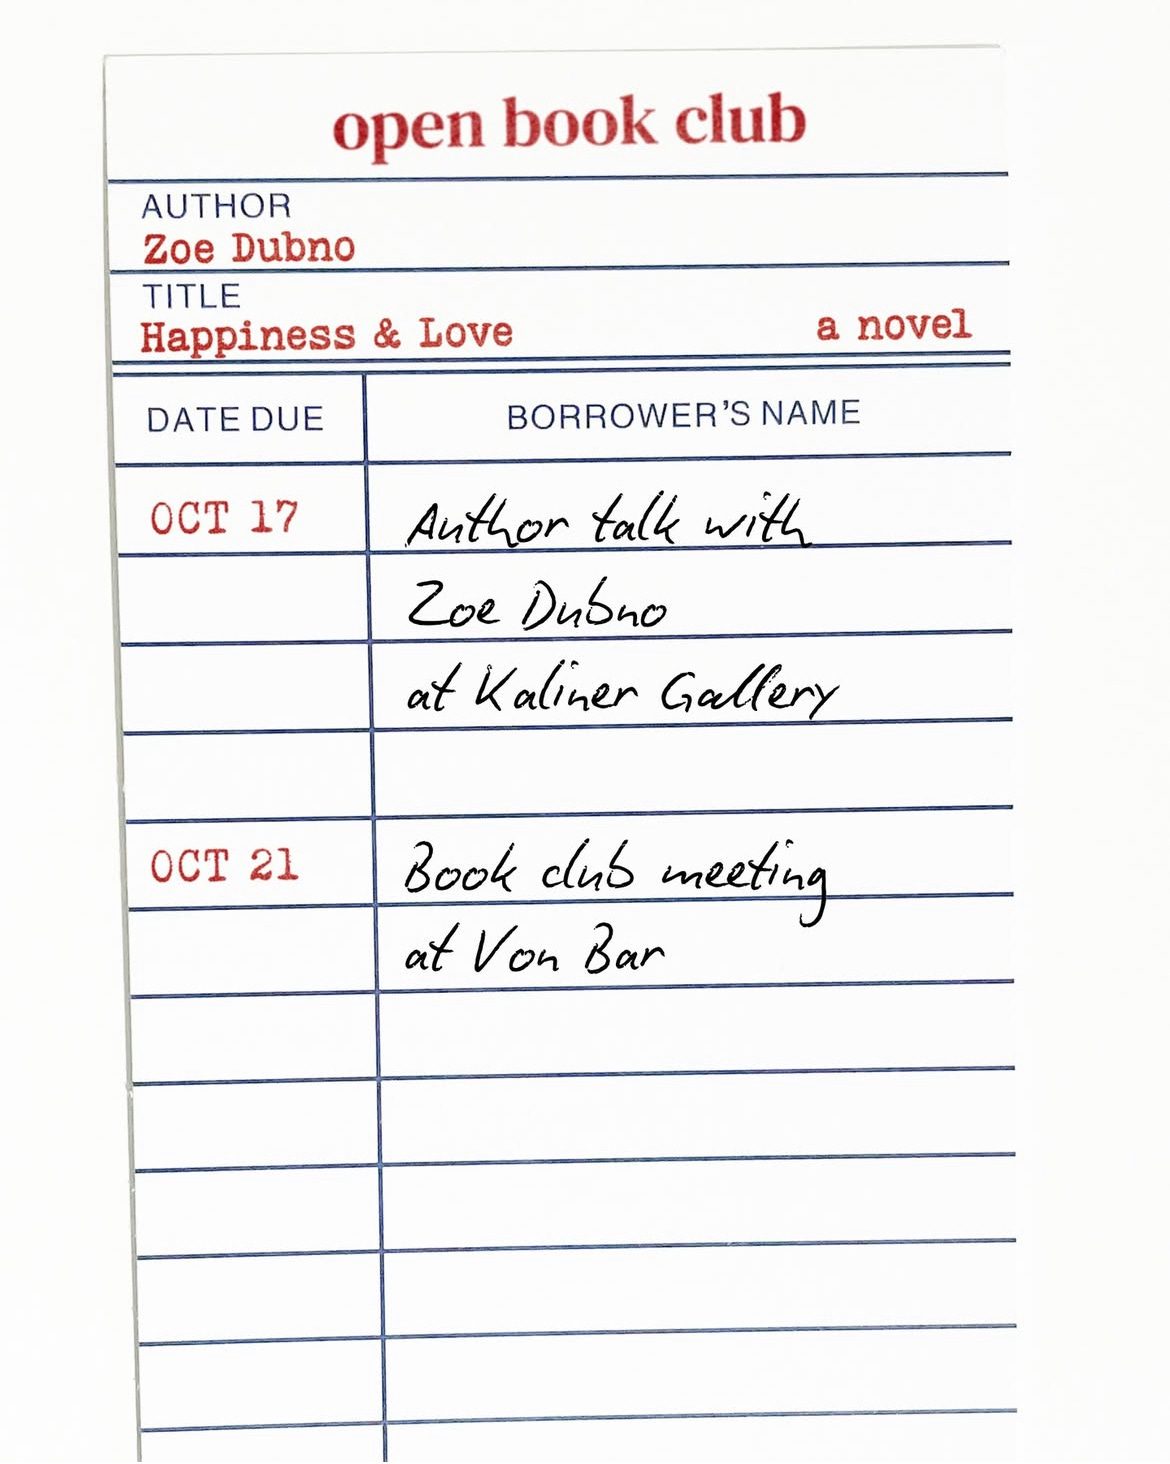 open book club
AUTHOR
Zoe Dubno
TITLE
Happiness & Love a novel
DATE DUE BORROWER'S NAME
OCT 17 Author talk with
Zoe Dubno
at Kaliner Gallery
OCT 21 Book club meeting
at Von Bar